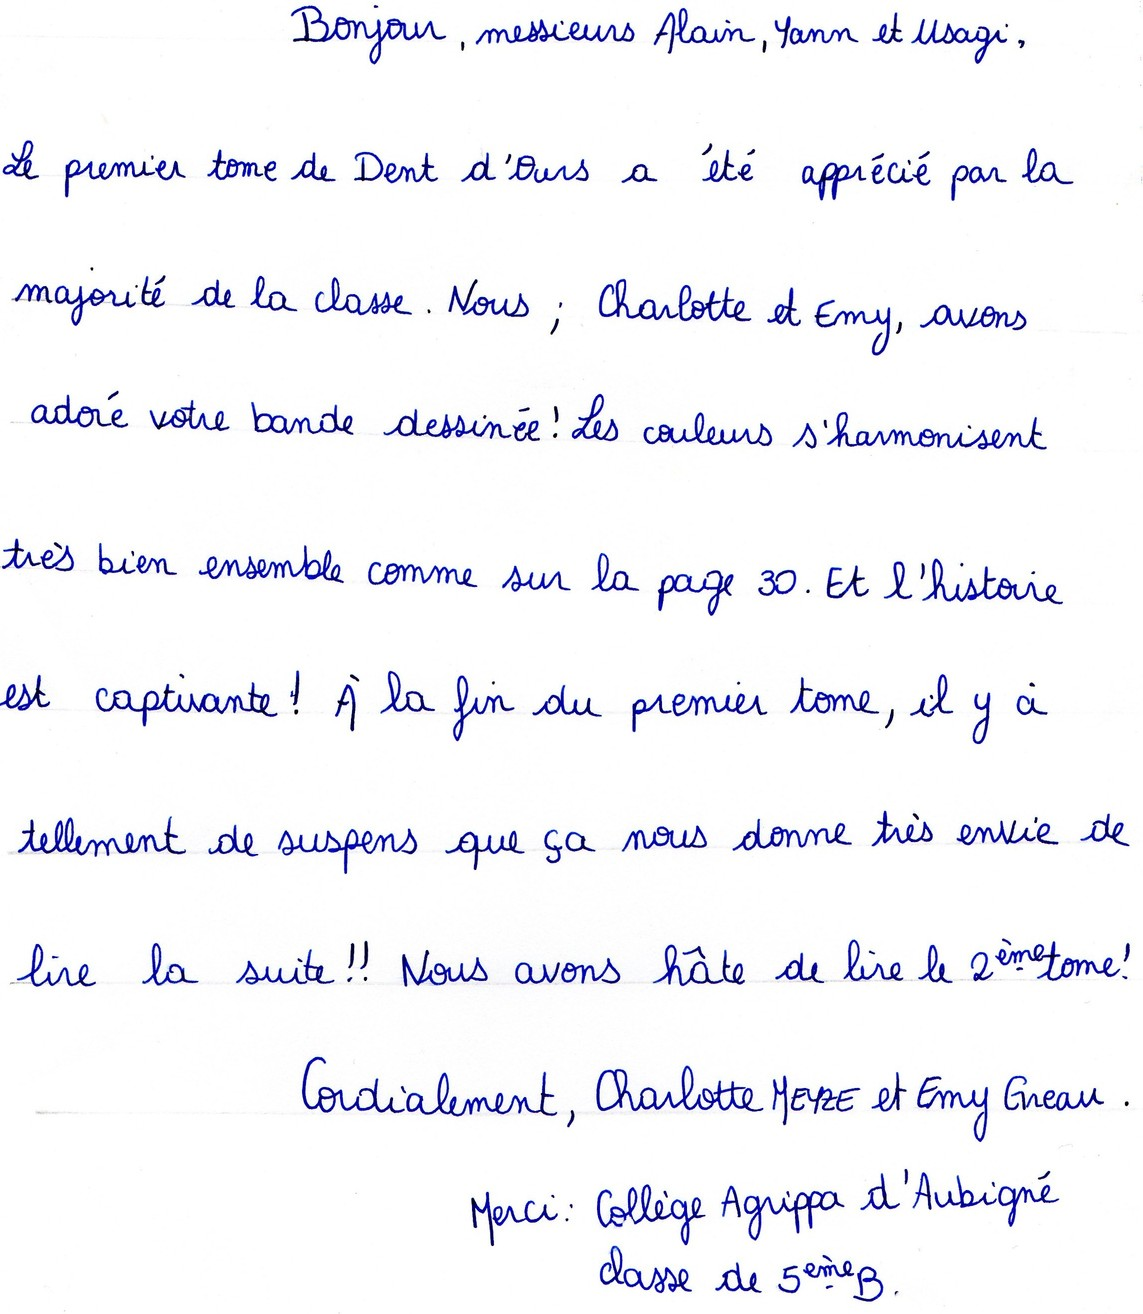 Bonjour, messieurs Alain, Yann et Usagi,
Le premier tome de Dent d'Ours a été apprécié par la
majorité de la classe. Nous ; Charlotte et Emy, avons
adoré votre bande dessinée ! Les couleurs s'harmonisent
très bien ensemble comme sur la page 30. Et l'histoire
est captivante ! À la fin du premier tome, il y à
tellement de suspens que ça nous donne très envie de
lire la suite !! Nous avons hâte de lire le 2ème tome !
Cordialement, Charlotte MEYZE et Emy Greau.
Merci : Collège Agrippa d'Aubigné
classe de 5eme B.